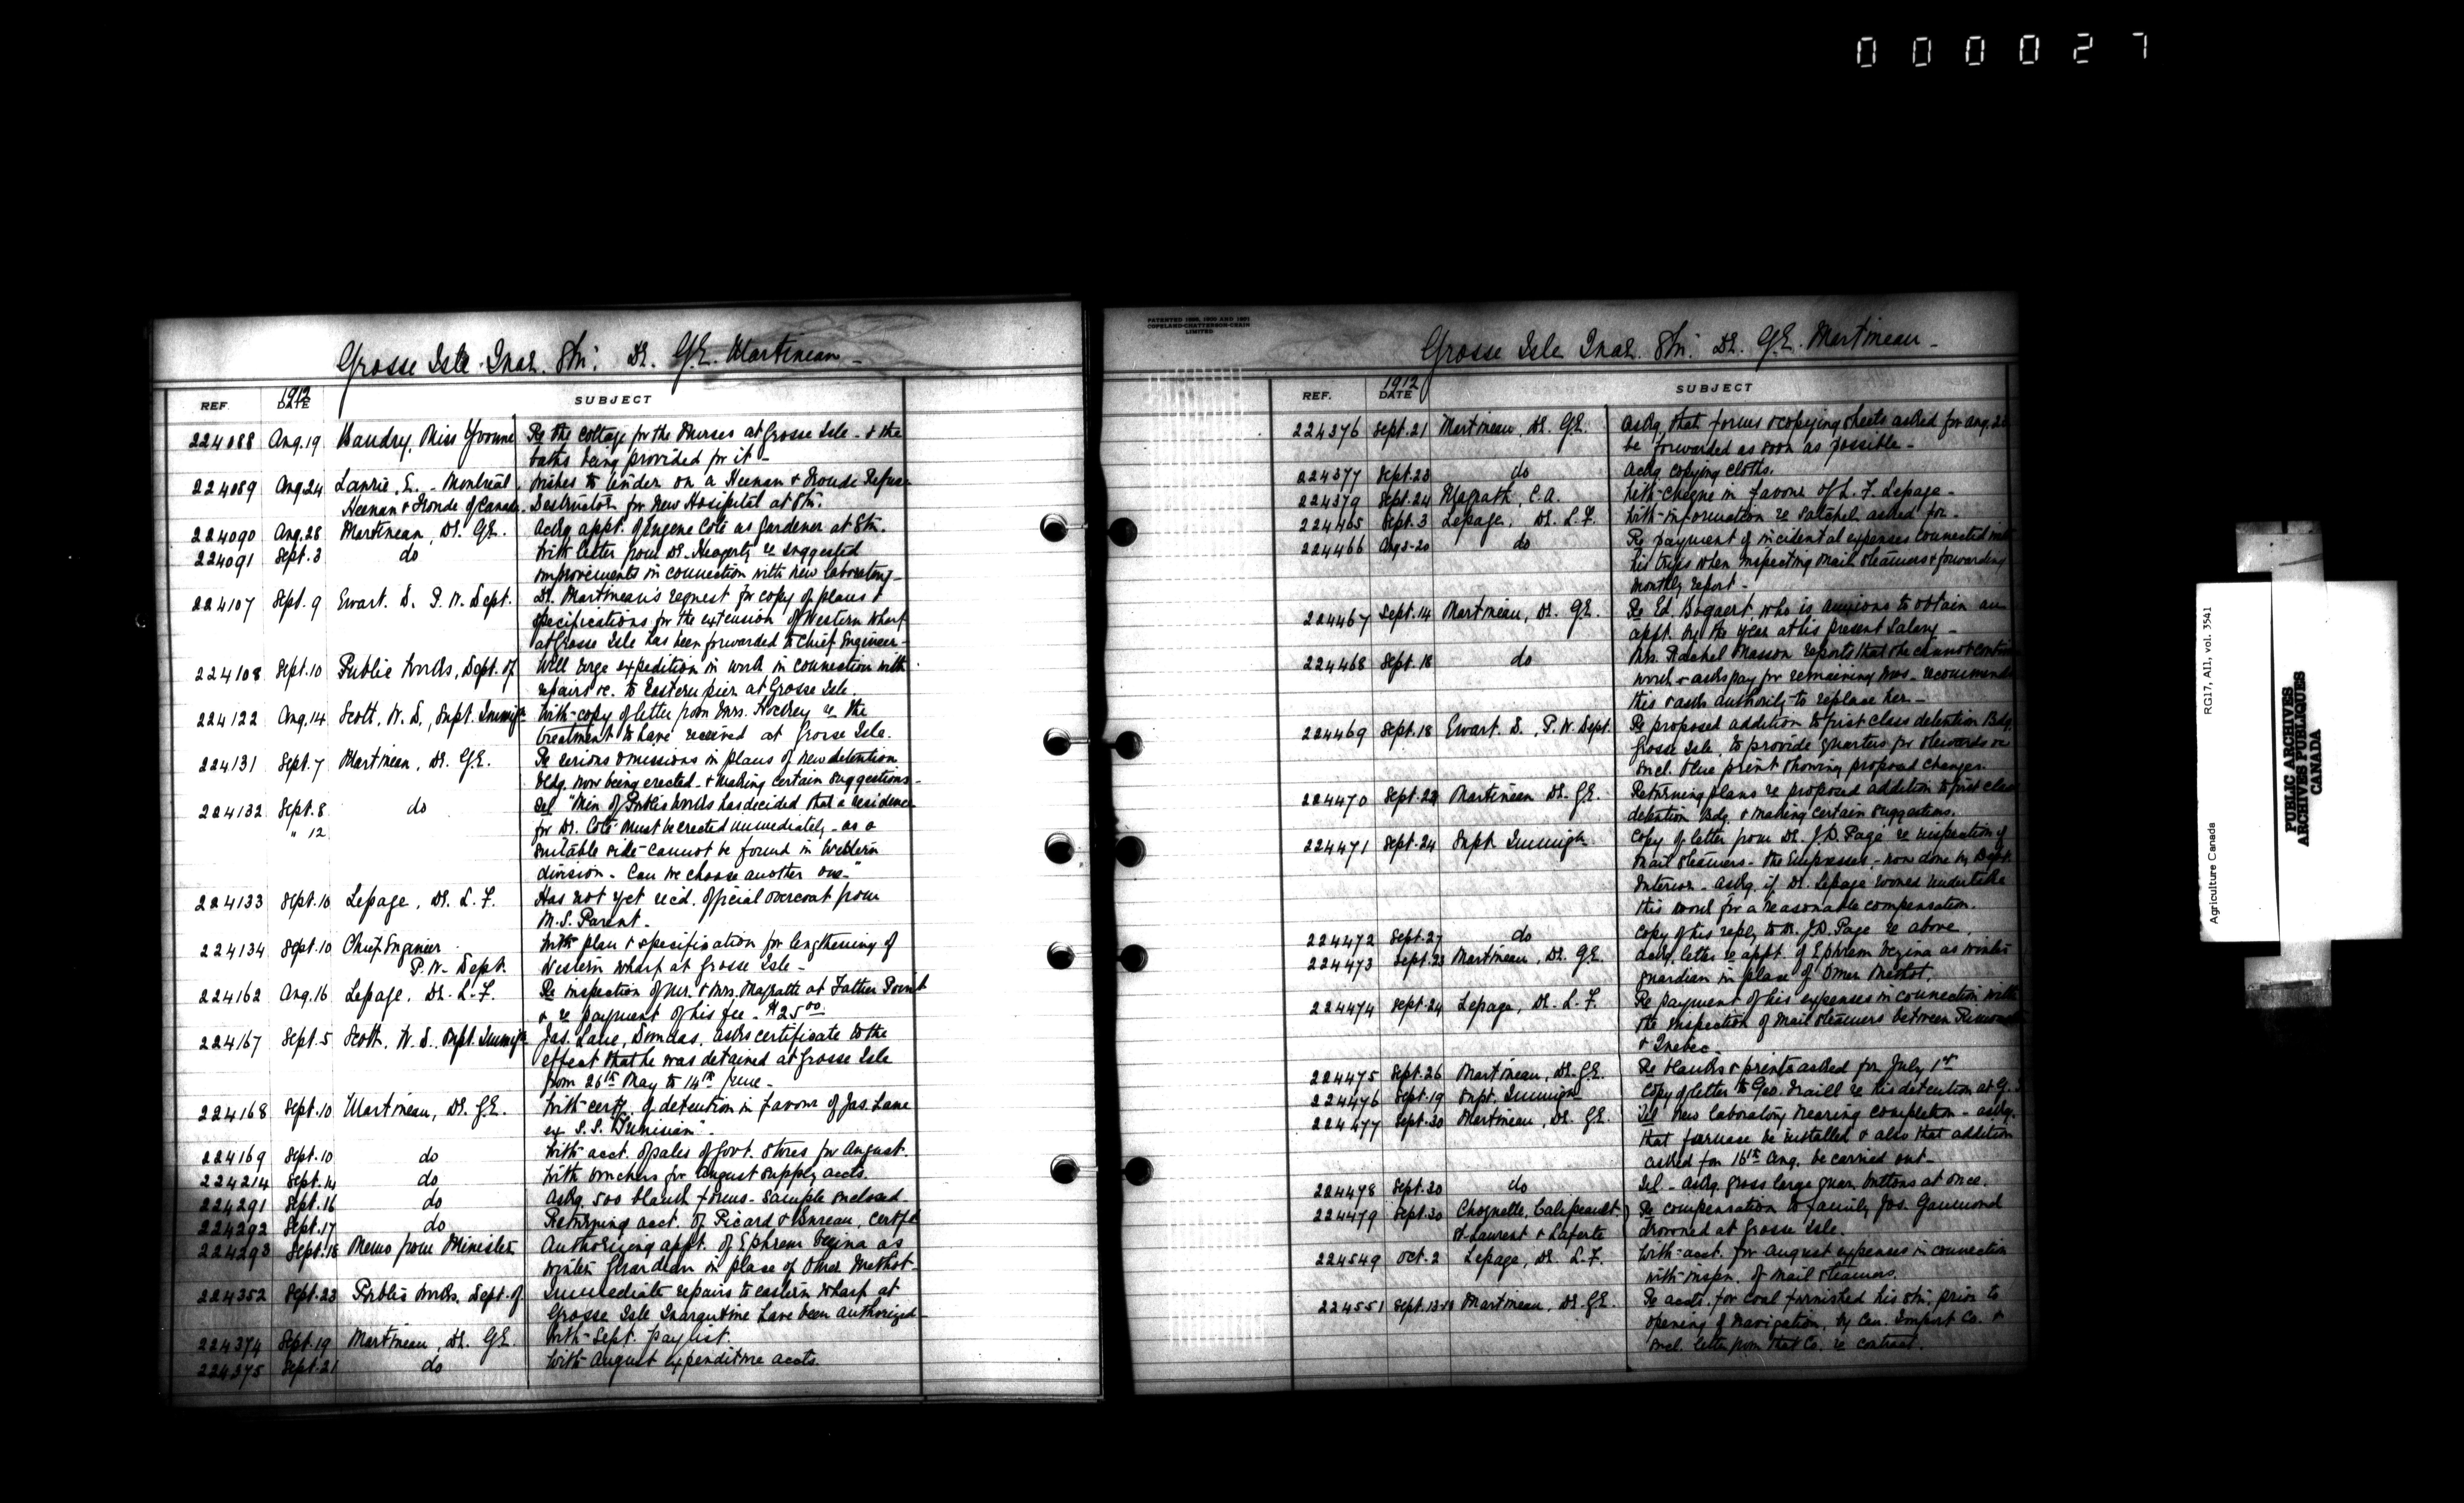 000027
Grosse Isle Quar. Stn: Dr. G.E. Martineau -
REF. 1912 DATE SUBJECT
224088 Aug. 19 Baudry, Miss Yvonne Re the cottage for the Nurses at Grosse Isle - & the
baths being provided for it -
224089 Aug. 24 Lawrie, E. - Montreal Wishes to tender on a Heenan & Froude Refuse
Heenan & Froude of Canada. Destructor for New Hospital at Stn.
224090 Aug. 28 Martineau, Dr. G.E. Ackg appt. of Eugene Coté as Gardener at Stn.
224091 Sept. 3 do With letter from Dr. Heagerty re suggested
improvements in connection with new laboratory -
224107 Sept. 9 Ewart. D. P.W. Dept. Dr. Martineau's request for copy of plans &
specifications for the extension of Western Wharf
at Grosse Isle has been forwarded to Chief Engineer -
224108 Sept. 10 Public Works, Dept. of Will urge expedition in work in connection with
repairs &c. to Eastern pier at Grosse Isle.
224122 Aug. 14 Scott, W.D., Supt. Immigr. With copy of letter from Mrs. re the
treatment to have received at Grosse Isle.
224131 Sept. 7 Martineau, Dr. G.E. Re serious omissions in plans of new detention
bldg. now being erected - & making certain suggestions -
224132 Sept. 8 do Tel "Min. of Public Works has decided that a residence
" 12 for Dr. Coté must be erected immediately - as a
suitable side cannot be found in Western
division - Can we choose another one - "
224133 Sept. 10 Lepage, Dr. L.F. Has not yet recd. official overcoat from
M.S. Parent -
224134 Sept. 10 Chief Engineer With plan & specification for lengthening of
P.W. Dept. Western Wharf at Grosse Isle -
224162 Aug. 16 Lepage, Dr. L.F. Re inspection of Mr. & Mrs. Magrath at Father Point
& re payment of his fee - $25.00
224167 Sept. 5 Scott, W.D. Supt. Immigr. Jas. Lane, Dundas, asks certificate to the
effect that he was detained at Grosse Isle
from 26th May to 14th June -
224168 Sept. 10 Martineau, Dr. G.E. With certf. of detention in favour of Jas. Lane
ex S.S. "Tunisian" -
224169 Sept. 10 do With acct. of sales of Govt. Stores for August.
224214 Sept. 14 do With vouchers for August supply accts.
224291 Sept. 16 do Askg 500 blank forms - sample enclosed
224292 Sept. 17 do Returning acct. of Picard & Bureau, certfd
224293 Sept. 18 Memo from Minister Authorizing appt. of Ephrem Vezina as
winter Guardian in place of Omer Methot -
224352 Sept. 23 Public Works, Dept. of Immediate repairs to eastern wharf at
Grosse Isle Quarantine have been authorized -
224374 Sept. 19 Martineau, Dr. G.E. With Sept. paylist.
224375 Sept. 21 do With August expenditure accts.
PATENTED 1898, 1900 AND 1901
COPELAND-CHATTERSON-CRAIN
LIMITED
Grosse Isle Quar. Stn: Dr. G.E. Martineau -
REF. 1912 DATE SUBJECT
224376 Sept. 21 Martineau, Dr. G.E. Askg. that forms & copying sheets asked for Aug. 28
be forwarded as soon as possible -
224377 Sept. 23 do Askg copying cloths.
224379 Sept. 24 Magrath, C.A. With cheque in favour of L.F. Lepage -
224465 Sept. 3 Lepage, Dr. L.F. With information re satchel asked for -
224466 Aug. 5-20 do Re payment of incidental expenses connected with
his trips when inspecting mail steamers & forwarding
monthly report -
224467 Sept. 14 Martineau, Dr. G.E. Re Ed. Bogaert, who is anxious to obtain an
appt. by the year at his present salary -
224468 Sept. 18 do Mrs. Rachel Masson reports that she cannot continue
work & asks pay for remaining mos. - recommends
this & asks authority to replace her -
224469 Sept. 18 Ewart D., P.W. Dept Re proposed addition to first class detention Bdg.
Grosse Isle, to provide quarters for stewards &c
encl. blue print showing proposed changes.
224470 Sept. 22 Martineau Dr. G.E. Returning plans re proposed addition to first class
detention Bdg. & making certain suggestions.
224471 Sept. 24 Supt. Immigr. Copy of letter from Dr. J.D. Page re inspection of
mail steamers - the Empresses - now done by Dept.
Interior - askg. if Dr. Lepage would undertake
this work for a reasonable compensation.
224472 Sept. 27 do Copy of his reply to Dr. J.D. Page re above.
224473 Sept. 23 Martineau, Dr. G.E. Ackg. letter re appt. of Ephrem Vezina as winter
guardian in place of Omer Methot.
224474 Sept. 24 Lepage, Dr. L.F. Re payment of his expenses in connection with
the inspection of mail steamers between Rimouski
& Quebec.
224475 Sept. 26 Martineau, Dr. G.E. Re blanks & prints asked for July 1st
224476 Sept. 19 Supt. Immigr. Copy of letter to Geo. Naill re his detention at G.I.
224477 Sept. 30 Martineau, Dr. G.E. Tel New laboratory nearing completion - askg.
that furnace be installed & also that addition
asked for 16th Aug. be carried out -
224478 Sept. 30 do Tel - Askg. gross large quar. buttons at once.
224479 Sept. 30 Choquette, Galipeault Re compensation to family Jos. Gaumond
St-Laurent & Laferté drowned at Grosse Isle.
224549 Oct. 2 Lepage, Dr. L.F. With acct. for August expenses in connection
with inspn. of mail steamers.
224551 Sept. 13- Martineau, Dr. G.E. Re accts. for coal furnished his stn. prior to
opening of navigation, by Can. Import Co. &
encl. letter from that Co. re contract.
Agriculture Canada RG17, AII, vol. 3541
PUBLIC ARCHIVES
ARCHIVES PUBLIQUES
CANADA